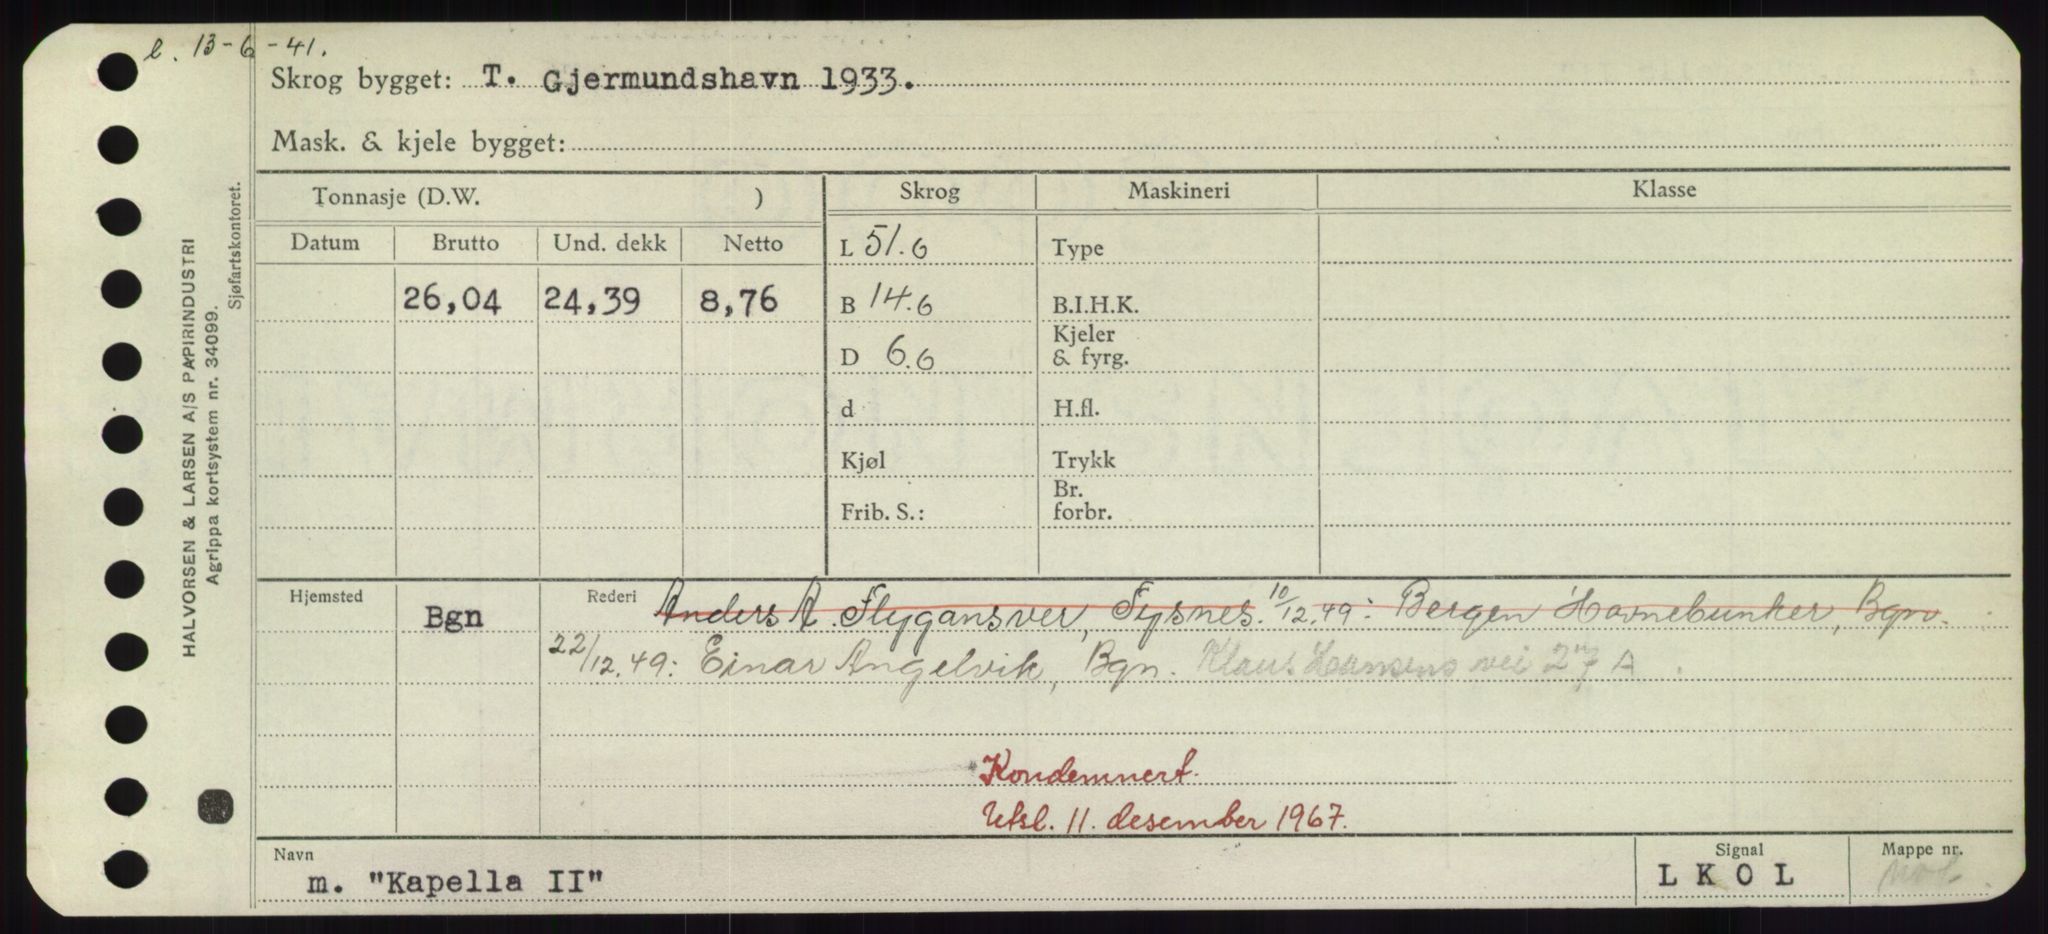 l. 13-6-41.
Skrog bygget: T. Gjermundshavn 1933.
Mask. & kjele bygget:
Tonnasje (D.W. )
Skrog
Maskineri
Klasse
Datum
Brutto
Und. dekk
Netto
L 51.6
Type
26,04
24,39
8,76
B 14.6
B.I.H.K.
D 6.6
Kjeler
& fyrg.
d
H.fl.
Kjøl
Trykk
Frib. S.:
Br.
forbr.
Hjemsted
Bgn
Rederi
Anders A. Flygansver, Fysnes. 10/12.49: Bergen Havnebunker, Bgn.
22/12.49: Einar Angelvik, Bgn. Klaus Hansens vei 27 A.
Kondemnert.
Utsl. 11. desember 1967.
Navn
m. "Kapella II"
Signal
L K O L
Mappe nr.
HALVORSEN & LARSEN A/S PAPIRINDUSTRI
Agrippa kortsystem nr. 34099.
Sjøfartskontoret.